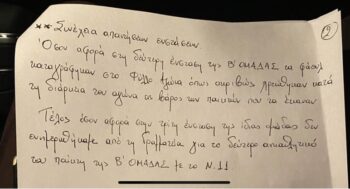 ** Συνέχεια απαντήσεων ενστάσεων. 2
Όσον αφορά στη δεύτερη ένσταση της Β' ΟΜΑΔΑΣ τα φάουλ
καταγράφηκαν στο Φύλλο Αγώνα όπως ακριβώς χρεώθηκαν κατά
τη διάρκεια του αγώνα εις βάρος των παικτών που τα έκαναν
Τέλος όσον αφορά στην τρίτη ένσταση της ίδιας ομάδας δεν
ενημερωθήκαμε από τη Γραμματεία για το δεύτερο αντιαθλητικό
του παίκτη της Β' ΟΜΑΔΑΣ με το Ν.11.